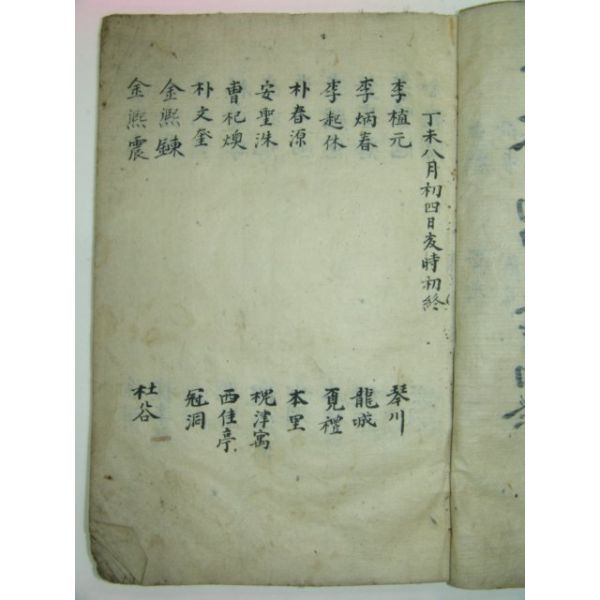 丁未八月初四日亥時初終
李植元 琴川
李炳春 龍城
李起休 覓禮
朴春源 本里
安聖洙 槐津寓
曹杞煥 西佳亭
朴文奎 冠洞
金熙鍊
金熙震 杜谷